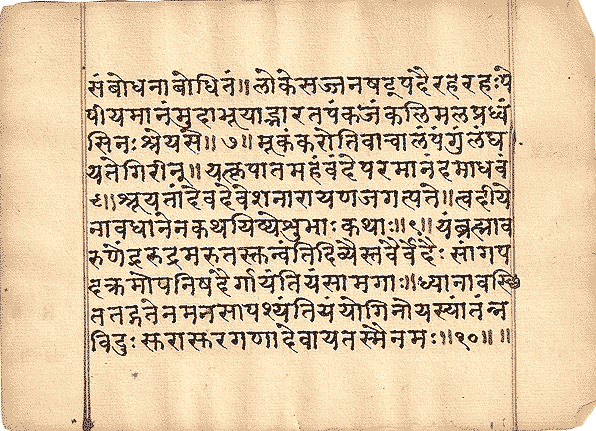 संबोधनाबोधितं॥लोकेसज्जनषट्पदैरहरहःपे
पीयमानंमुदाभूयाद्भारतपंकजंकलिमलप्रध्वं
सिनःश्रेयसे॥७॥मूकंकरोतिवाचालंपंगुंलंघ
यतेगिरीन्॥यत्कृपातमहंवंदेपरमानंदमाधवं
८॥श्रूयतांदेवदेवेशनारायणजगत्पते॥त्वदीये
नावधानेनकथयिष्येशुभाःकथाः॥९॥यंब्रह्माव
रुणेंद्ररुद्रमरुतस्तुन्वंतिदिव्यैस्तवैर्वेदैः सांगप
दक्रमोपनिषदैर्गायंतियंसामगाः॥ध्यानावस्थि
ततद्गतेनमनसापश्यंतियंयोगिनोयस्यांतंन
विदुः सुरासुरगणादेवायतस्मैनमः॥१०॥॥